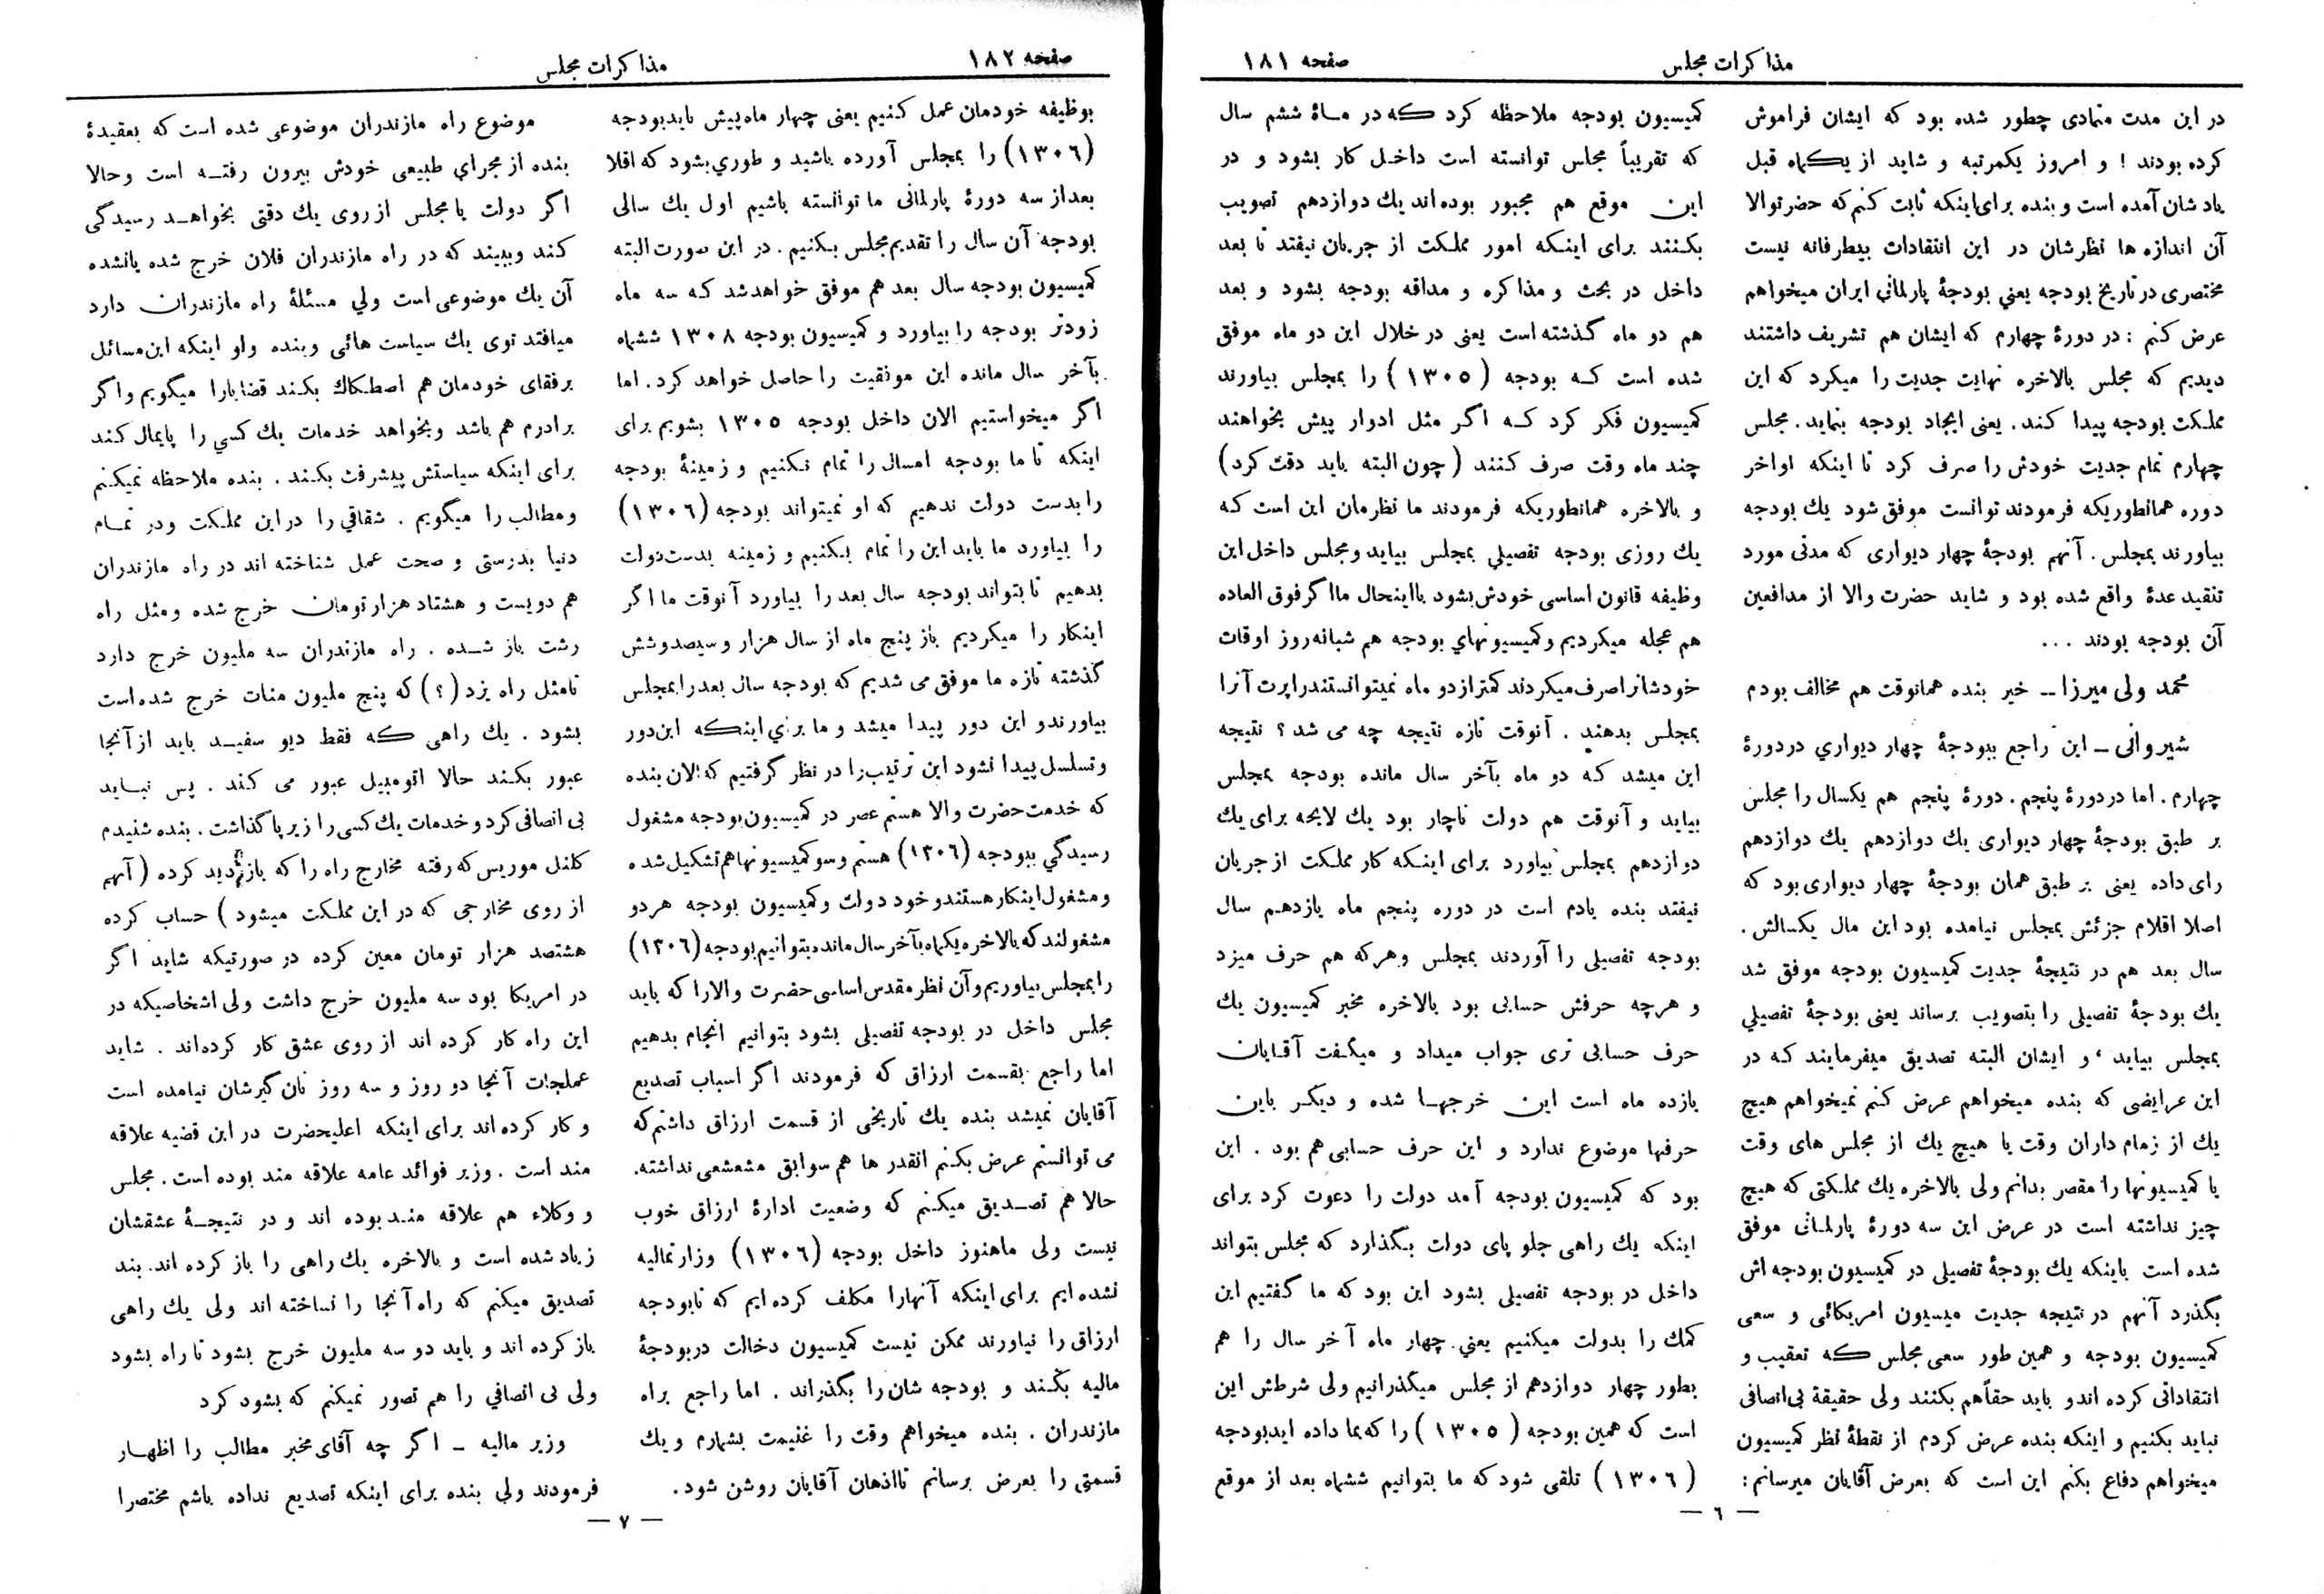 مذاکرات مجلس
صفحه ۱۸۱
در این مدت متمادی چطور شده بود که ایشان فراموش
کرده بودند ! و امروز یکمرتبه و شاید از یکماه قبل
یادشان آمده است و بنده برای اینکه ثابت کنم که حضرتوالا
آن اندازه ها نظرشان در این انتقادات بیطرفانه نیست
مختصری در تاریخ بودجه یعنی بودجهٔ پارلمانی ایران میخواهم
عرض کنم : در دورهٔ چهارم که ایشان هم تشریف داشتند
دیدیم که مجلس بالاخره نهایت جدیت را میکرد که این
مملکت بودجه پیدا کند . یعنی ایجاد بودجه بنماید . مجلس
چهارم تمام جدیت خودش را صرف کرد تا اینکه اواخر
دوره همانطوریکه فرمودند توانست موفق شود یك بودجه
بیاورند بمجلس . آنهم بودجهٔ چهار دیواری که مدتی مورد
تنقید عدهٔ واقع شده بود و شاید حضرت والا از مدافعین
آن بودجه بودند ...
محمد ولی میرزا ــ خیر بنده همانوقت هم مخالف بودم
شیروانی ــ این راجع ببودجهٔ چهار دیواری در دورهٔ
چهارم . اما در دورهٔ پنجم . دورهٔ پنجم هم یکسال را مجلس
بر طبق بودجهٔ چهار دیواری یك دوازدهم یك دوازدهم
رای داده یعنی بر طبق همان بودجهٔ چهار دیواری بود که
اصلا اقلام جزئش بمجلس نیامده بود این مال یکسالش .
سال بعد هم در نتیجهٔ جدیت کمیسیون بودجه موفق شد
یك بودجهٔ تفصیلی را بتصویب برساند یعنی بودجهٔ تفصیلی
بمجلس بیاید ، و ایشان البته تصدیق میفرمایند که در
این عرایضی که بنده میخواهم عرض کنم نمیخواهم هیچ
یك از زمام داران وقت یا هیچ یك از مجلس های وقت
یا کمیسیونها را مقصر بدانم ولی بالاخره یك مملکتی که هیچ
چیز نداشته است در عرض این سه دورهٔ پارلمانی موفق
شده است باینکه یك بودجهٔ تفصیلی در کمیسیون بودجه اش
بگذرد آنهم در نتیجه جدیت میسیون امریکائی و سعی
کمیسیون بودجه و همین طور سعی مجلس که تعقیب و
انتقاداتی کرده اند و باید حقاً هم بکنند ولی حقیقة بی انصافی
نباید بکنیم و اینکه بنده عرض کردم از نقطهٔ نظر کمیسیون
میخواهم دفاع بکنم این است که بعرض آقایان میرسانم :
کمیسیون بودجه ملاحظه کرد که در ماهٔ ششم سال
که تقریباً مجلس توانسته است داخل کار بشود و در
این موقع هم مجبور بوده اند یك دوازدهم تصویب
بکنند برای اینکه امور مملکت از جریان نیفتد تا بعد
داخل در بحث و مذاکره و مداقه بودجه بشود و بعد
هم دو ماه گذشته است یعنی در خلال این دو ماه موفق
شده است که بودجه ( ۱۳۰۵ ) را بمجلس بیاورند
کمیسیون فکر کرد که اگر مثل ادوار پیش بخواهند
چند ماه وقت صرف کنند ( چون البته باید دقت کرد )
و بالاخره همانطوریکه فرمودند ما نظرمان این است که
یك روزی بودجه تفصیلی بمجلس بیاید و مجلس داخل این
وظیفه قانون اساسی خودش بشود با اینحال ما اگر فوق العاده
هم عجله میکردیم و کمیسیونهای بودجه هم شبانه روز اوقات
خودشانرا صرف میکردند کمتر از دو ماه نمیتوانستند راپرت آنرا
بمجلس بدهند . آنوقت تازه نتیجه چه می شد ؟ نتیجه
این میشد که دو ماه بآخر سال مانده بودجه بمجلس
بیاید و آنوقت هم دولت ناچار بود یك لایحه برای یك
دوازدهم بمجلس بیاورد برای اینکه کار مملکت از جریان
نیفتد بنده یادم است در دوره پنجم ماه یازدهم سال
بودجه تفصیلی را آوردند بمجلس و هرکه هم حرف میزد
و هرچه حرفش حسابی بود بالاخره مخبر کمیسیون یك
حرف حسابی تری جواب میداد و میگفت آقایان
یازده ماه است این خرجها شده و دیگر باین
حرفها موضوع ندارد و این حرف حسابی هم بود . این
بود که کمیسیون بودجه آمد دولت را دعوت کرد برای
اینکه یك راهی جلو پای دولت بگذارد که مجلس بتواند
داخل در بودجه تفصیلی بشود این بود که ما گفتیم این
کمك را بدولت میکنیم یعنی چهار ماه آخر سال را هم
بطور چهار دوازدهم از مجلس میگذرانیم ولی شرطش این
است که همین بودجه ( ۱۳۰۵ ) را که بما داده اید بودجه
( ۱۳۰۶ ) تلقی شود که ما بتوانیم ششماه بعد از موقع
— ٦ —
صفحه ۱۸۲
مذاکرات مجلس
بوظیفه خودمان عمل کنیم یعنی چهار ماه پیش باید بودجه
(۱۳۰۶) را بمجلس آورده باشید و طوری بشود که اقلا
بعد از سه دورهٔ پارلمانی ما توانسته باشیم اول یك سالی
بودجه آن سال را تقدیم مجلس بکنیم . در این صورت البته
کمیسیون بودجه سال بعد هم موفق خواهد شد که سه ماه
زودتر بودجه را بیاورد و کمیسیون بودجه ۱۳۰۸ ششماه
بآخر سال مانده این موفقیت را حاصل خواهد کرد . اما
اگر میخواستیم الان داخل بودجه ۱۳۰۵ بشویم برای
اینکه تا ما بودجه امسال را تمام نکنیم و زمینهٔ بودجه
را بدست دولت ندهیم که او نمیتواند بودجه (۱۳۰۶)
را بیاورد ما باید این را تمام بکنیم و زمینه بدست دولت
بدهیم تا بتواند بودجه سال بعد را بیاورد آنوقت ما اگر
اینکار را میکردیم باز پنج ماه از سال هزار و سیصد و شش
گذشته تازه ما موفق می شدیم که بودجه سال بعد را بمجلس
بیاورند و این دور پیدا میشد و ما برای اینکه این دور
و تسلسل پیدا نشود این ترتیب را در نظر گرفتیم که الان بنده
که خدمت حضرت والا هستم عصر در کمیسیون بودجه مشغول
رسیدگی ببودجه (۱۳۰۶) هستم و سو کمیسیونها هم تشکیل شده
و مشغول اینکار هستند و خود دولت و کمیسیون بودجه هر دو
مشغولند که بالاخره یکماه بآخر سال مانده بتوانیم بودجه (۱۳۰۶)
را بمجلس بیاوریم و آن نظر مقدس اساسی حضرت والا را که باید
مجلس داخل در بودجه تفصیلی بشود بتوانیم انجام بدهیم
اما راجع بقسمت ارزاق که فرمودند اگر اسباب تصدیع
آقایان نمیشد بنده یك تاریخی از قسمت ارزاق داشتم که
می توانستم عرض بکنم انقدر ها هم سوابق مشعشعی نداشته.
حالا هم تصدیق میکنم که وضعیت ادارهٔ ارزاق خوب
نیست ولی ما هنوز داخل بودجه (۱۳۰۶) وزارتمالیه
نشده ایم برای اینکه آنهارا مکلف کرده ایم که تا بودجه
ارزاق را نیاورند ممکن نیست کمیسیون دخالت در بودجهٔ
مالیه بکند و بودجه شان را بگذراند . اما راجع براه
مازندران . بنده میخواهم وقت را غنیمت بشمارم و یك
قسمتی را بعرض برسانم تا اذهان آقایان روشن شود .
موضوع راه مازندران موضوعی شده است که بعقیدهٔ
بنده از مجرای طبیعی خودش بیرون رفته است و حالا
اگر دولت یا مجلس از روی یك دقتی بخواهد رسیدگی
کند و ببیند که در راه مازندران فلان خرج شده یا نشده
آن یك موضوعی است ولی مسئلهٔ راه مازندران دارد
میافتد توی یك سیاست هائی و بنده ولو اینکه این مسائل
برفقای خودمان هم اصطکاك بکند قضایا را میگویم و اگر
برادرم هم باشد و بخواهد خدمات یك کسی را پایمال کند
برای اینکه سیاستش پیشرفت بکند . بنده ملاحظه نمیکنم
و مطالب را میگویم . شقاقی را در این مملکت و در تمام
دنیا بدرستی و صحت عمل شناخته اند در راه مازندران
هم دویست و هشتاد هزار تومان خرج شده و مثل راه
رشت باز شده . راه مازندران سه ملیون خرج دارد
تا مثل راه یزد (؟) که پنج ملیون منات خرج شده است
بشود . یك راهی که فقط دیو سفید باید از آنجا
عبور بکند حالا اتومبیل عبور می کند . پس نباید
بی انصافی کرد و خدمات یك کسی را زیر پا گذاشت . بنده شنیدم
کلنل موریس که رفته مخارج راه را که بازدید کرده ( آنهم
از روی مخارجی که در این مملکت میشود ) حساب کرده
هشتصد هزار تومان معین کرده در صورتیکه شاید اگر
در امریکا بود سه ملیون خرج داشت ولی اشخاصیکه در
این راه کار کرده اند از روی عشق کار کرده‌اند . شاید
عملجات آنجا دو روز و سه روز نان گیرشان نیامده است
و کار کرده اند برای اینکه اعلیحضرت در این قضیه علاقه
مند است . وزیر فوائد عامه علاقه مند بوده است . مجلس
و وکلاء هم علاقه مند بوده اند و در نتیجهٔ عشقشان
زیاد شده است و بالاخره یك راهی را باز کرده اند. بند
تصدیق میکنم که راه آنجا را نساخته اند ولی یك راهی
باز کرده اند و باید دو سه ملیون خرج بشود تا راه بشود
ولی بی انصافی را هم تصور نمیکنم که بشود کرد
وزیر مالیه ــ اگر چه آقای مخبر مطالب را اظهار
فرمودند ولی بنده برای اینکه تصدیع نداده باشم مختصرا
— ۷ —